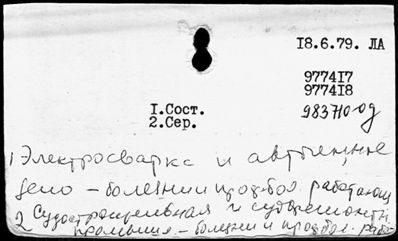 18.6.79. ЛА
977417
977418
983710-од
1.Сост.
2.Сер.
1 Электросварка и автогенное
дело - болезни и профбол. работающ
2 Судостроительная и судоремонтн.
промышл. - болезни и профбол. раб.